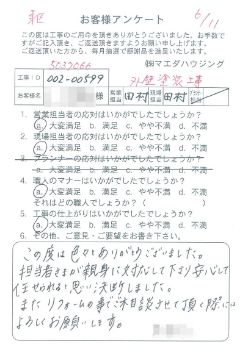 お客様アンケート
6/11
この度は工事のご用命を頂きありがとうございました。お手数で
すがご記入頂き、ご返送頂きますようお願い申し上げます。
ご返送頂いた方から、毎月抽選で感謝品を進呈いたします。
5037066
㈱マエダハウジング
工事ID
002-00599
外壁塗装工事
お客様名
様
営業担当
田村
現場担当
田村
1. 営業担当者の応対はいかがでしたでしょうか?
a. 大変満足 b. 満足 c. やや不満 d. 不満
2. 現場担当者の応対はいかがでしたでしょうか?
a. 大変満足 b. 満足 c. やや不満 d. 不満
3. プランナーの応対はいかがでしたでしょうか?
a. 大変満足 b. 満足 c. やや不満 d. 不満
4. 職人のマナーはいかがでしたでしょうか?
a. 大変満足 b. 満足 c. やや不満 d. 不満
それはどの職人でしょうか( )
5. 工事の仕上がりはいかがでしたでしょうか?
a. 大変満足 b. 満足 c. やや不満 d. 不満
6. その他、ご意見・ご要望をお書き下さい。
この度は色々ありがとうございました。
担当者さまが親身に対応して下さり安心して
任せられると思い決断しました。
また リフォームの事でご相談させて頂く際には
よろしくお願いします。